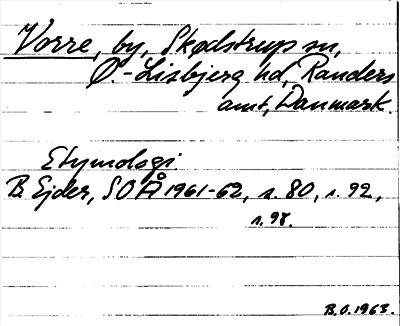 Vorre, by, Skødstrup sn,
Ø.-Lisbjerg hd, Randers
amt, Danmark.
Etymologi
B. Ejder, SOÅ 1961-62, s. 80, s. 92,
s. 98.
B.O. 1963.